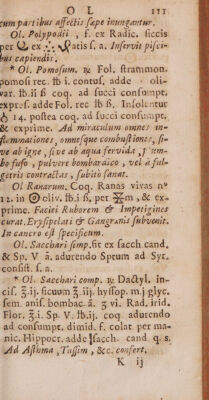 O L 111
cum partibus affectis sæpe inungantur.
Ol. Polypodii, f. ex Radic. siccis
per ex satis s. a. Inservit pisci-
bus capiendis.
* Ol. Pomosum. ꝶ. Fol. strammon.
pomosi rec. ℔ i. contus, adde oli-
var. ℔ ii ß coq. ad succi consumpt.
expres. adde Fol. rec ℔ ß. Insolentur
14. postea coq. ad succi consumpt.
& exprime. Ad miraculum omnes in-
flammationes, omnesque combustiones, si-
ve ab igne, sive ab aqua fervida, plum-
bo fuso, pulvere bombardico, vel à ful-
getris contractas, subito sanat.
Ol Ranarum. Coq. Ranas vivas n°
12. in Oliv. ℔ i ß, per & ex-
prime. Faciei Ruborem & Impetigines
curat. Erysipelati & Gangrænæ subvenit.
In cancro est specificum.
Ol. Sacchari simp. fit ex sacch. cand.
& Sp. V ā. adurendo Sptum ad Syr.
consist. s. a.
* Ol. Sacchari comp. ꝶ Dactyl. in-
cis. ℥.ij. ficuum ℥ iij. hyssop. m.j glyc.
sem. anis. bombac ā. ʒ vi. Rad. irid.
Flor. ℥.i. Sp. V. ℔.ij. coq adurendo
ad consumpt. dimid. f. colat. per ma-
nic. Hippocr. adde sacch. cand. q. s.
Ad Asthma, Tussim, &c. confert.
K ij